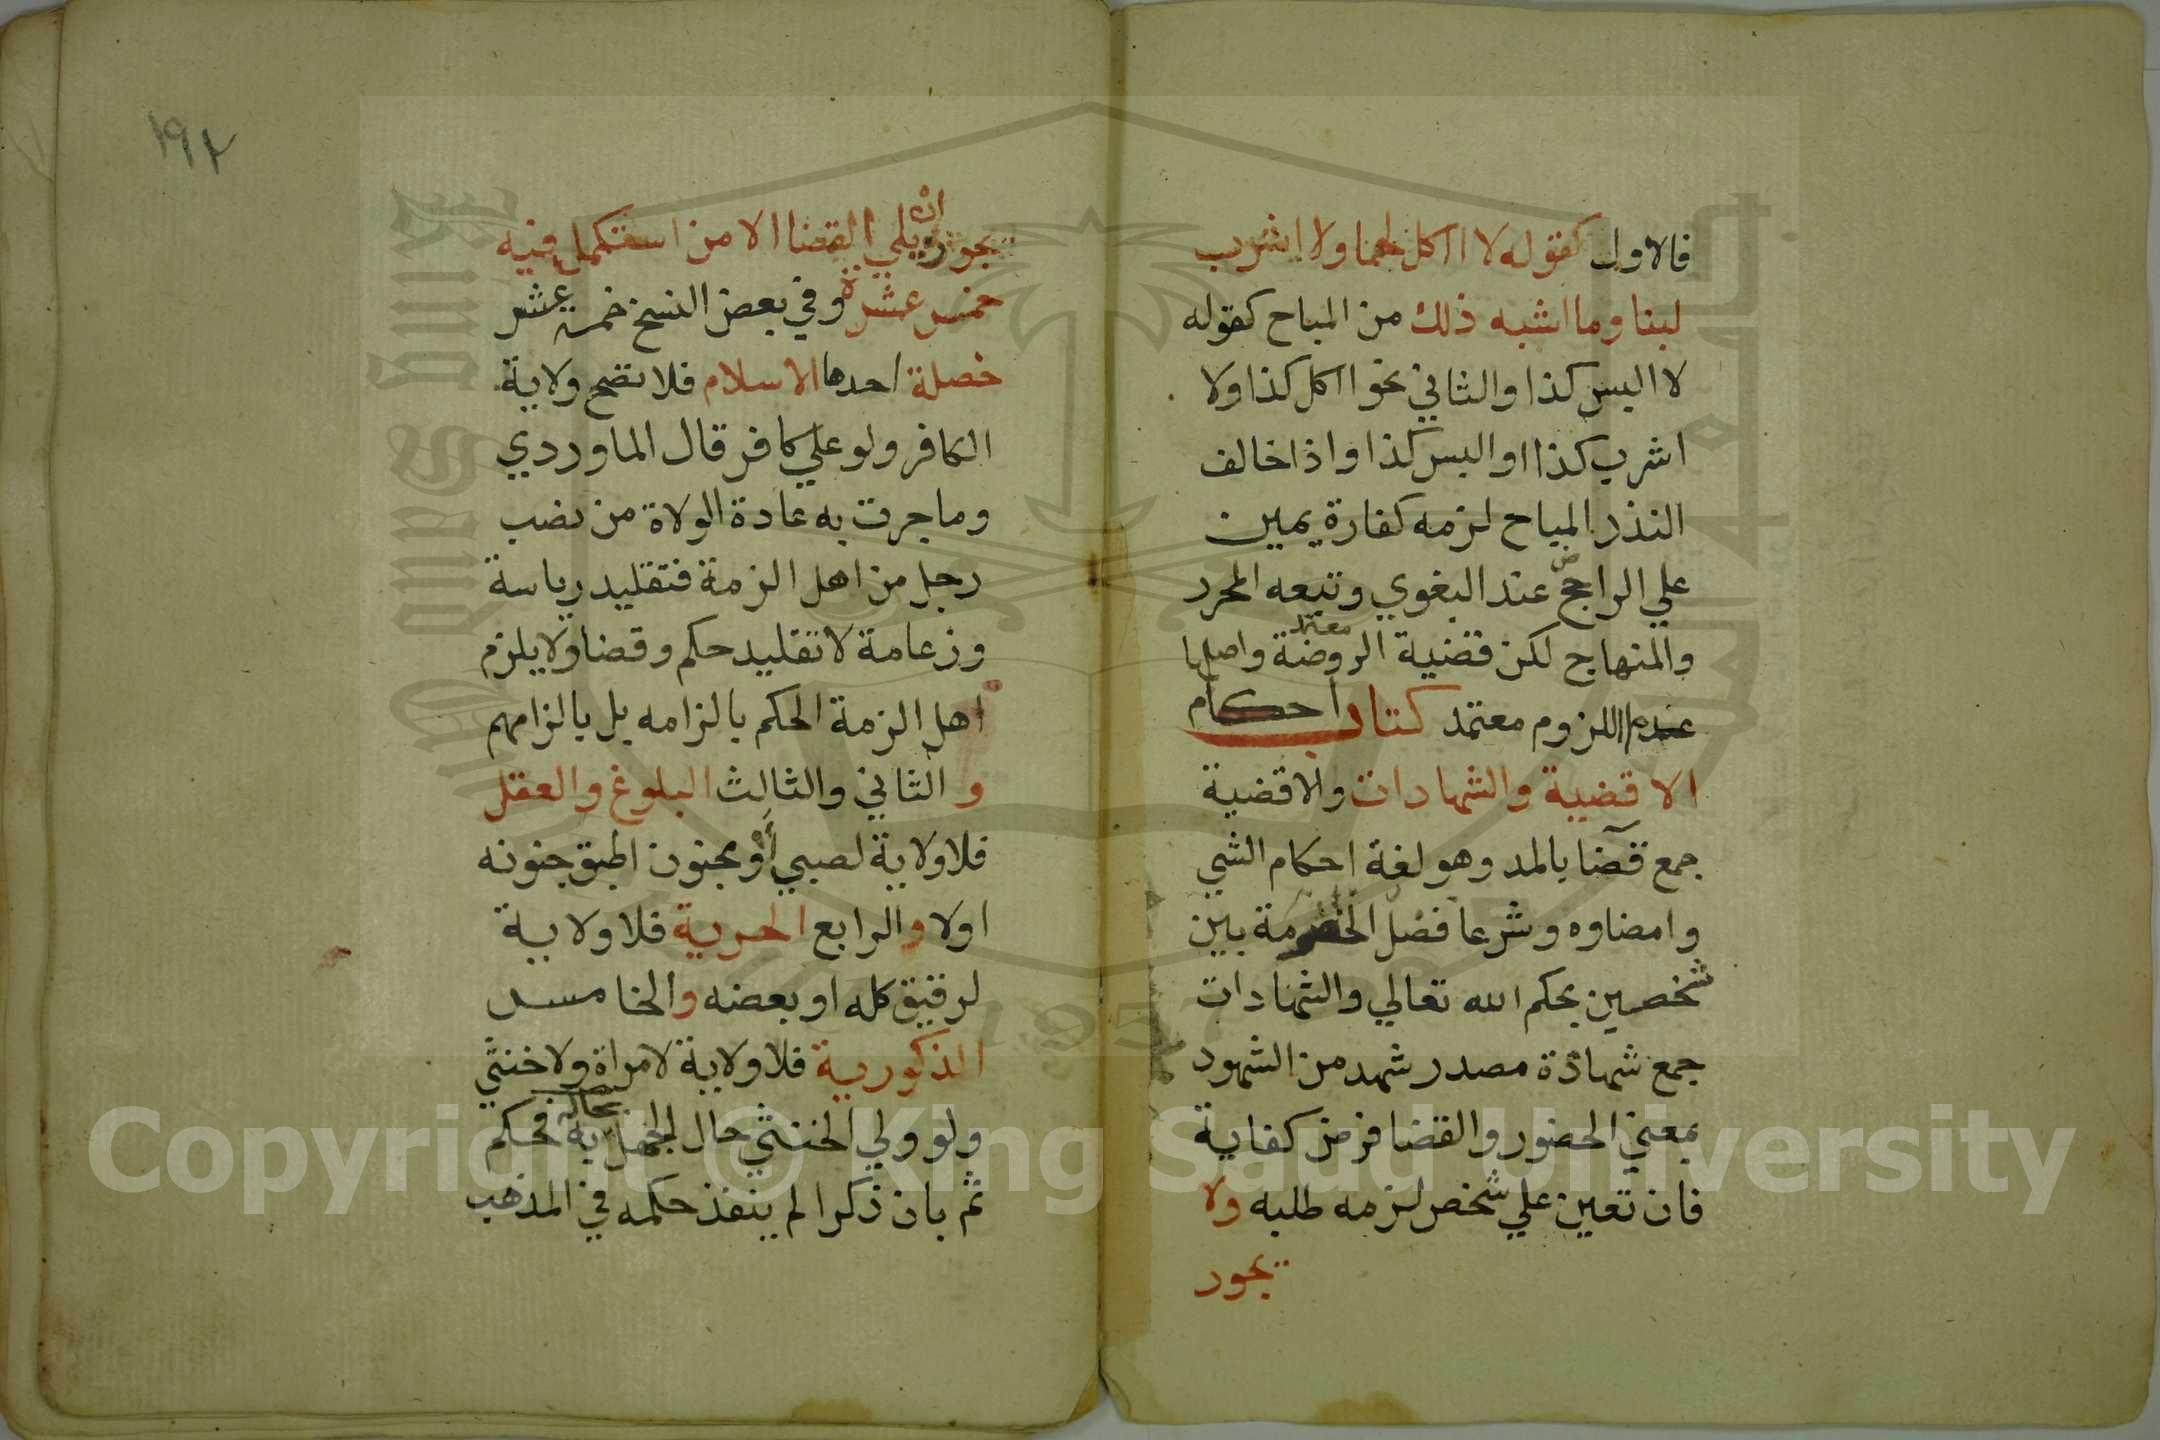 فالاول كقوله لا ااكل لحما ولا اشرب
لبنا وما اشبه ذلك من المباح كقوله
لا البس كذا والثاني نحو ااكل كذا ولا
اشرب كذا او البس كذا واذا خالف
النذر المباح لزمه كفارة يمين
علي الراجح عند البغوي وتبعه المحرر
معتمد
والمنهاج لكن قضية الروضة واصلها
عدم اللزوم معتمد كتاب احكام
الاقضية والشهادات والاقضية
جمع قضا بالمد وهو لغة احكام الشي
وامضاوه وشرعا فصل الخصومة بين
شخصين بحكم الله تعالي والشهادات
جمع شهادة مصدر شهد من الشهود
بمعني الحضور والقضا فرض كفاية
فان تعين علي شخص لزمه طلبه ولا
يجوز
١٩٢
يجوز ان يلي القضا الا من استكمل فيه
خمس عشرة وفي بعض النسخ خمسة عشر
خصلة احدها الاسلام فلا تصح ولاية
الكافر ولو علي كافر قال الماوردي
وما جرت به عادة الولاة من نصب
رجل من اهل الزمة فتقليد رياسة
وزعامة لا تقليد حكم وقضا ولا يلزم
اهل الزمة الحكم بالزامه بل بالزامهم
والثاني والثالث البلوغ والعقل
فلا ولاية لصبي او مجنون اطبق جنونه
اولا والرابع الحرية فلا ولاية
لرقيق كله او بعضه والخامس
الذكورية فلا ولاية لامراة ولا خنثي
بحاله
ولو ولي الخنثي حال الجهل به فحكم
ثم بان ذكرا لم ينفذ حكمه في المذهب
Copyright © King Saud University
1957